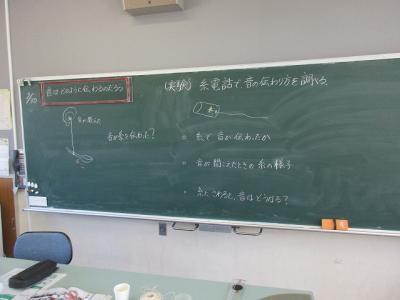 音はどのように伝わるのだろう
音が聞こえた
音が糸を伝わった?
(実験) 糸電話で、音の伝わり方を調べる。
糸で音が伝わったか
音が聞こえたときの糸の様子
糸にさわると、音はどうなる?